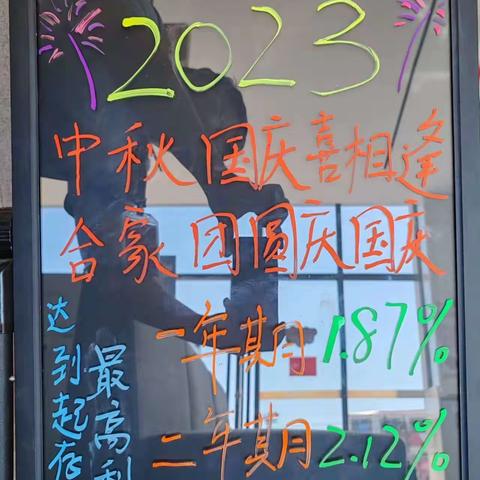 2023
中秋国庆喜相逢
合家团圆庆国庆
一年期 1.87%
二年期 2.12%
达到起存
最高利